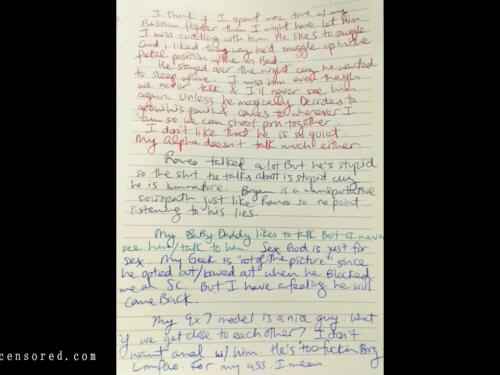 I think if I spent more time w/ my
Russian fighter then I might have let him
I miss cuddling with him. He likes to snuggle
and i liked the way he'd snuggle up in the
fetal position w/me in Bed.
He stayed over the night cuz he wanted
to sleep w/me. I miss him even though
we never talk & I'll never see him
again. Unless he magically Decides to
grow his penis & comes to wherever I
am so we can shoot porn together.
I don't like that he is so quiet
My Alpha doesn't talk much either
Romeo talked a lot But he's stupid
so the shit he talks about is stupid cuz
he is immature. Bryan is a manipulative
sociopath just like Romeo so no point
listening to his lies.
My BaBy Daddy likes to talk But I never
see him/talk to him. Sex God is just for
sex. My Geek is "out of the picture" since
he opted out/bowed out when he Blocked
me on SC. But I have a feeling he will
come Back.
My 9x7 model is a nice guy. What
if we get close to each other? I don't
want anal w/ him. He's too fuckin Big
Lmfao. For my ass. I mean.
censored.com